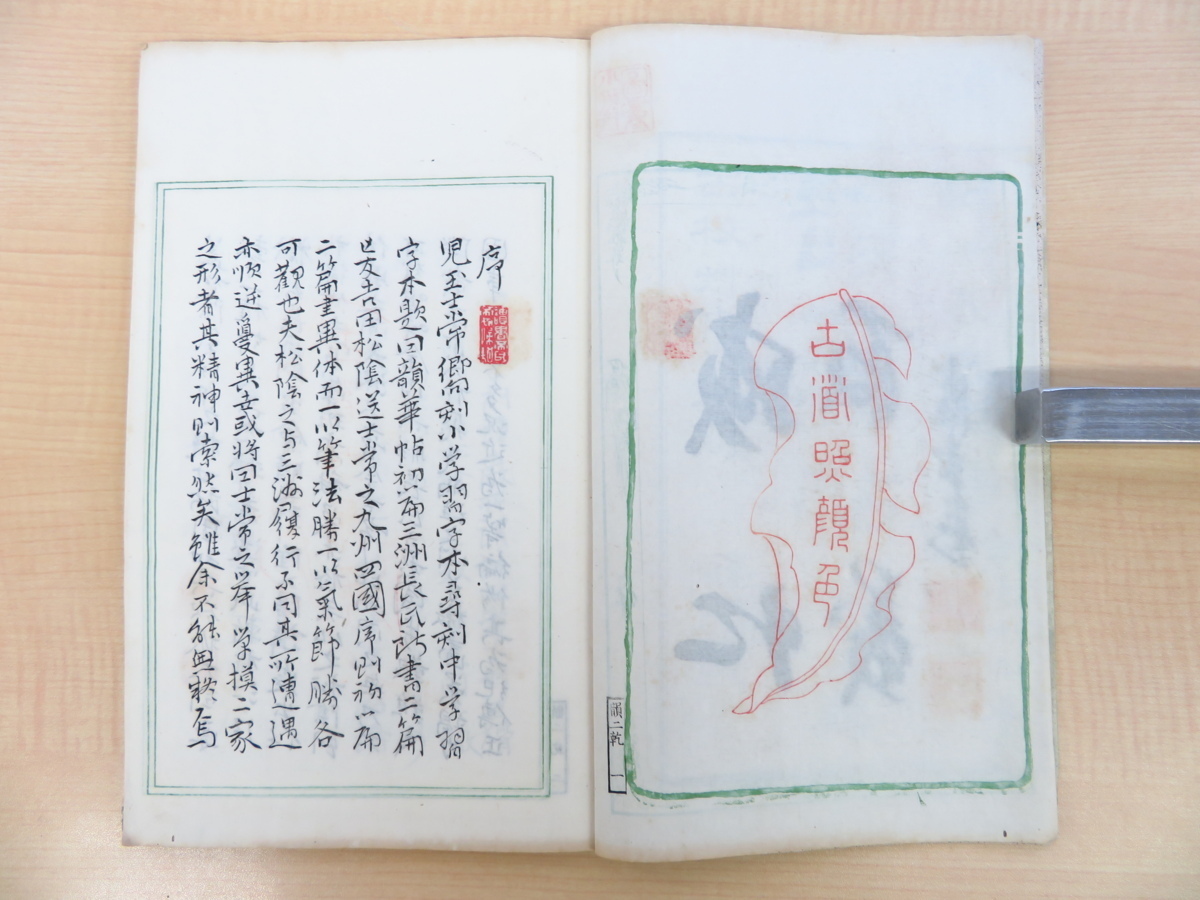 古道照顔色
韻二乾 一
序
児玉士常嚮刻小学習字本尋刻中学習
字本題曰韻華帖初篇三洲長氏所書二篇
亡友吉田松陰送士常之九州四國序則初篇
二篇書異体而一以筆法勝一以氣節勝各
可觀也夫松陰之与三洲履行不同其所遭遇
亦順逆敻異世或将曰士常之挙学摸二家
之形者其精神則索然矣雖余不能無疑焉